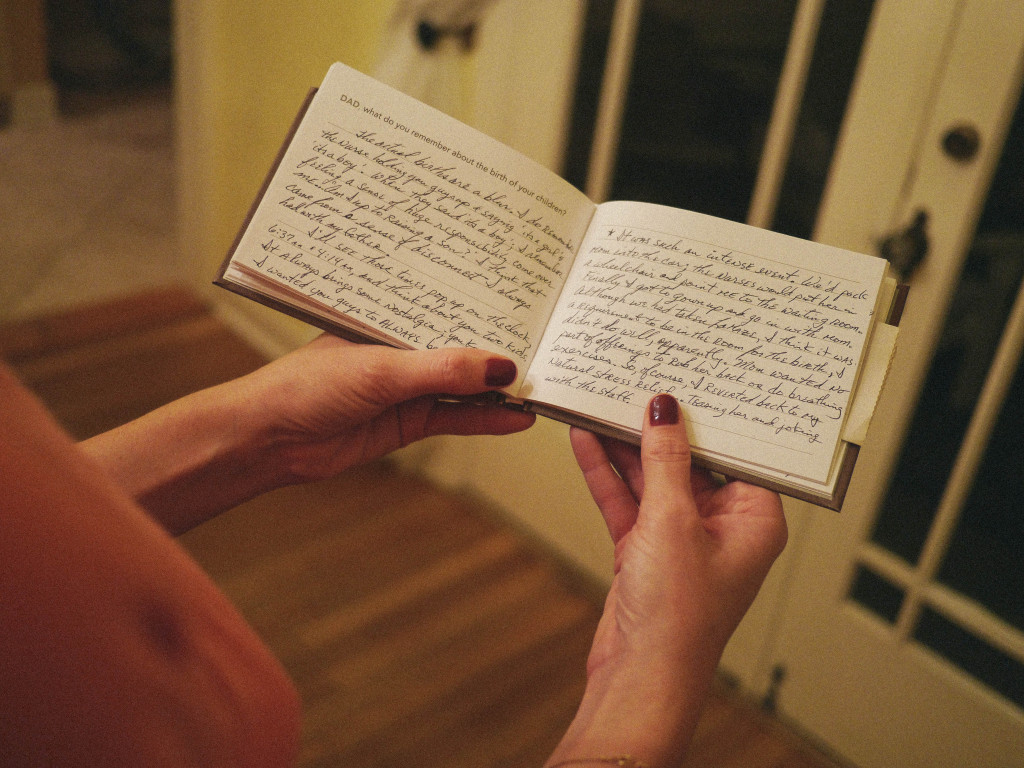 DAD, what do you remember about the birth of your children?
The actual births are a blur. I do remember
the nurse holding you guys up & saying 'it's a girl' &
'it's a boy'. When they said it's a boy, I remember
feeling a sense of huge responsibility come over
me. Am I up to raising a son? I think that
came from a sense of disconnect I always
had with my father.
I'll see those times pop up on the clock,
6:37 am & 4:14 pm, and think about you two kids.
It always brings some nostalgia.
I wanted you guys to ALWAYS
* It was such an intense event. We'd pack
mom into the car; the nurses would put her in
a wheelchair and point me to the waiting room.
Finally I got to gown up and go in with mom.
Although we had taken Lamaze, I think it was
a requirement to be in the room for the birth, I
didn't do well, apparently. Mom wanted no
part of offerings to rub her back or do breathing
exercises. So, of course, I reverted back to my
natural stress relief. Teasing her and joking
with the staff.